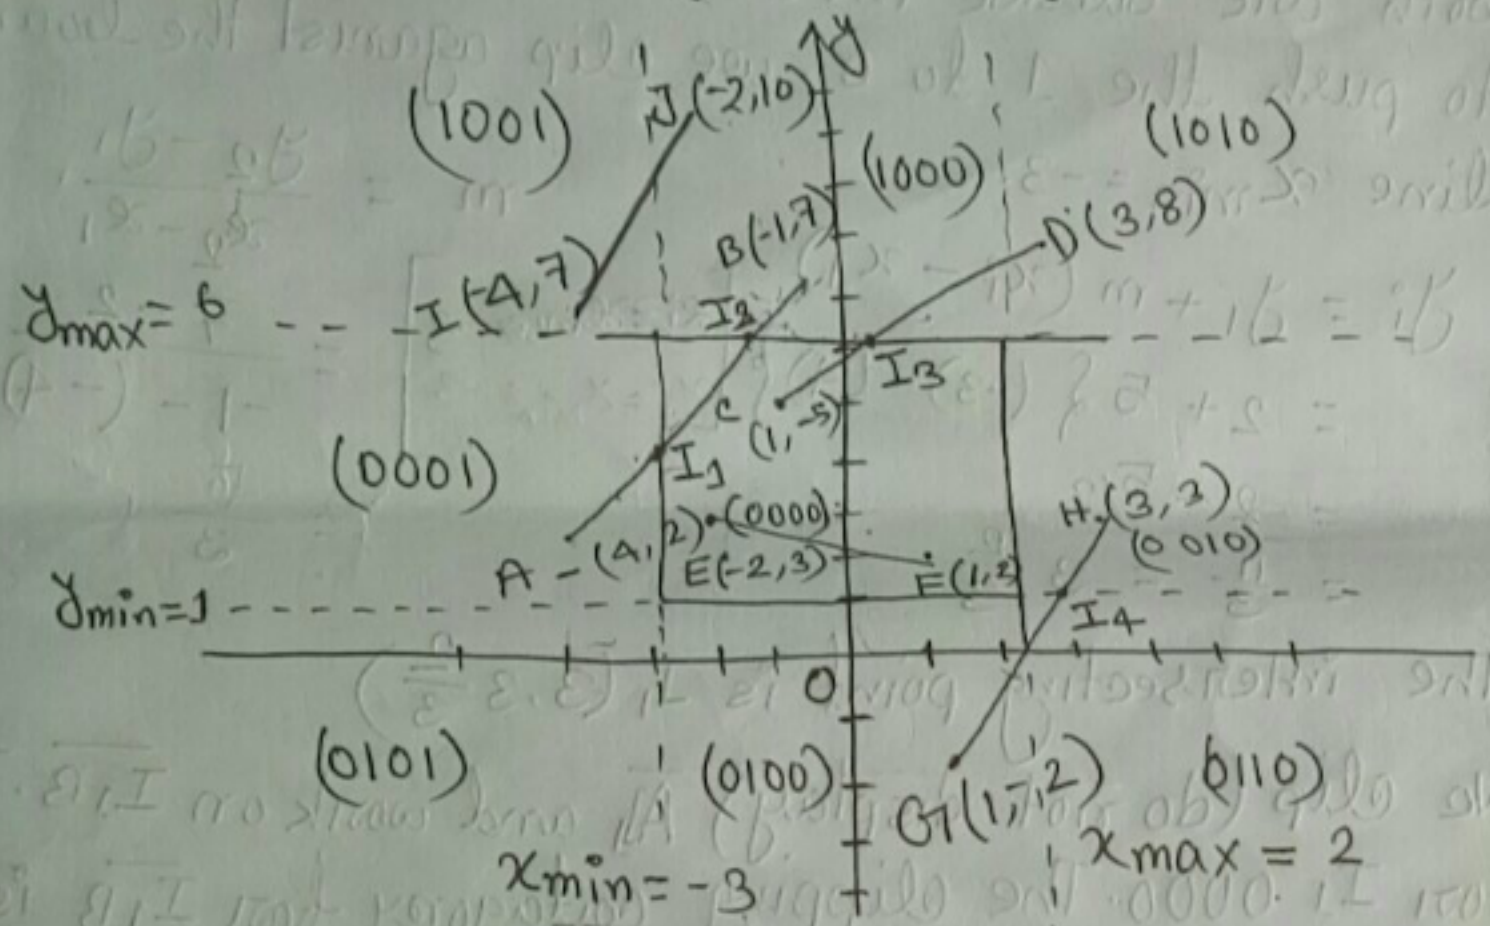 y
(1001)
J(-2,10)
(1010)
(1000)
B(-1,7)
D(3,8)
I(-4,7)
ymax= 6
I2
I3
C
(1,-5)
(0001)
I1
H(3,3)
(0010)
A -(4,2)
(0000)
E(-2,3)
F(1,2)
ymin=1
I4
O
(0101)
(0100)
G(1,-,2)
(0110)
xmin= -3
xmax = 2